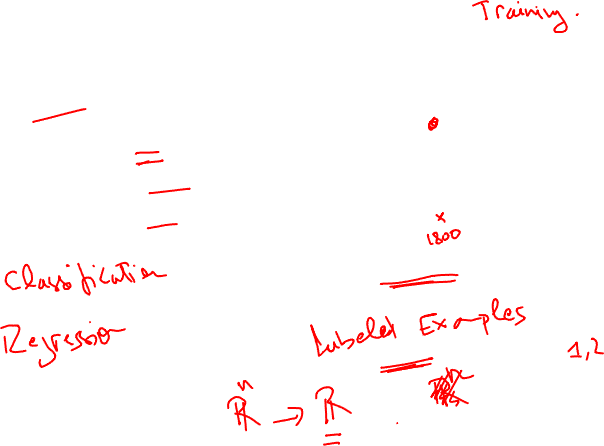 Training.
x
1800
Classification
Regression
Labeled Examples
1,2
ℝⁿ → ℝ